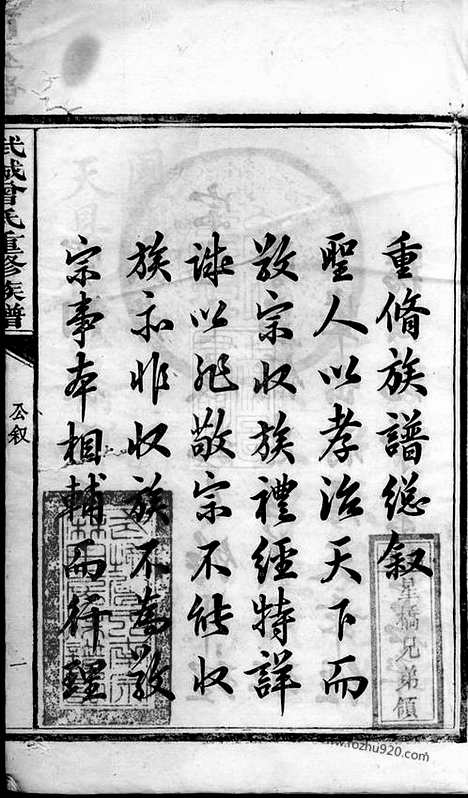 重脩族譜總叙
聖人以孝治天下而
敬宗收族禮經特詳
誠以非敬宗不能收
族亦非收族不為敬
宗事本相輔而行釐
武城曾氏重修族譜
公叙
一
星橋兄弟領
www.fozhu920.com